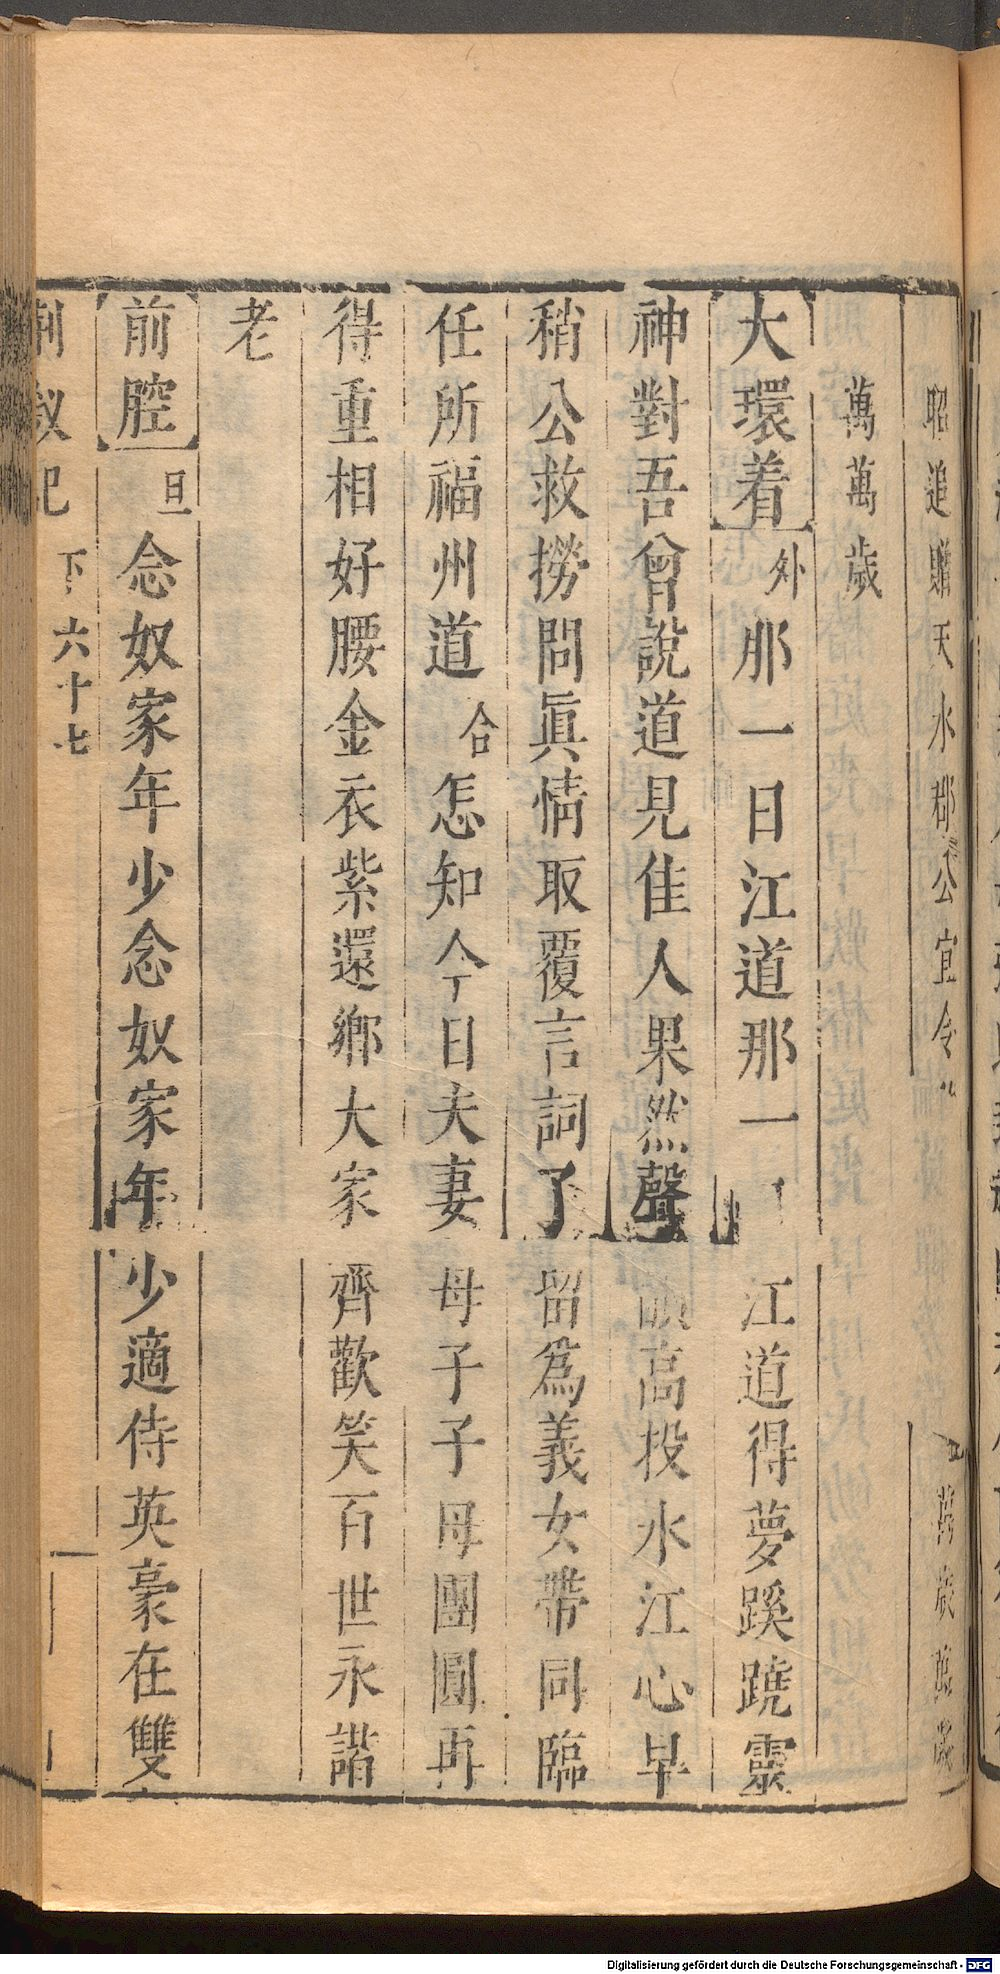 昭追贈天水郡公宜令 萬歲萬歲
萬萬歲
大環着 外 那一日江道那一 江道得夢蹊蹺靈
神對吾曾說道見佳人果然聲 高投水江心早
稍公救撈問眞情取覆言詞了 留爲義女帶同臨
任所福州道 合 怎知今日夫妻 母子子母團圓再
得重相好腰金衣紫還鄉大家 齊歡笑百世永諧
老
前腔 旦 念奴家年少念奴家年 少適侍英豪在雙
荆釵記 下 六十七
Digitalisierung gefördert durch die Deutsche Forschungsgemeinschaft - DFG